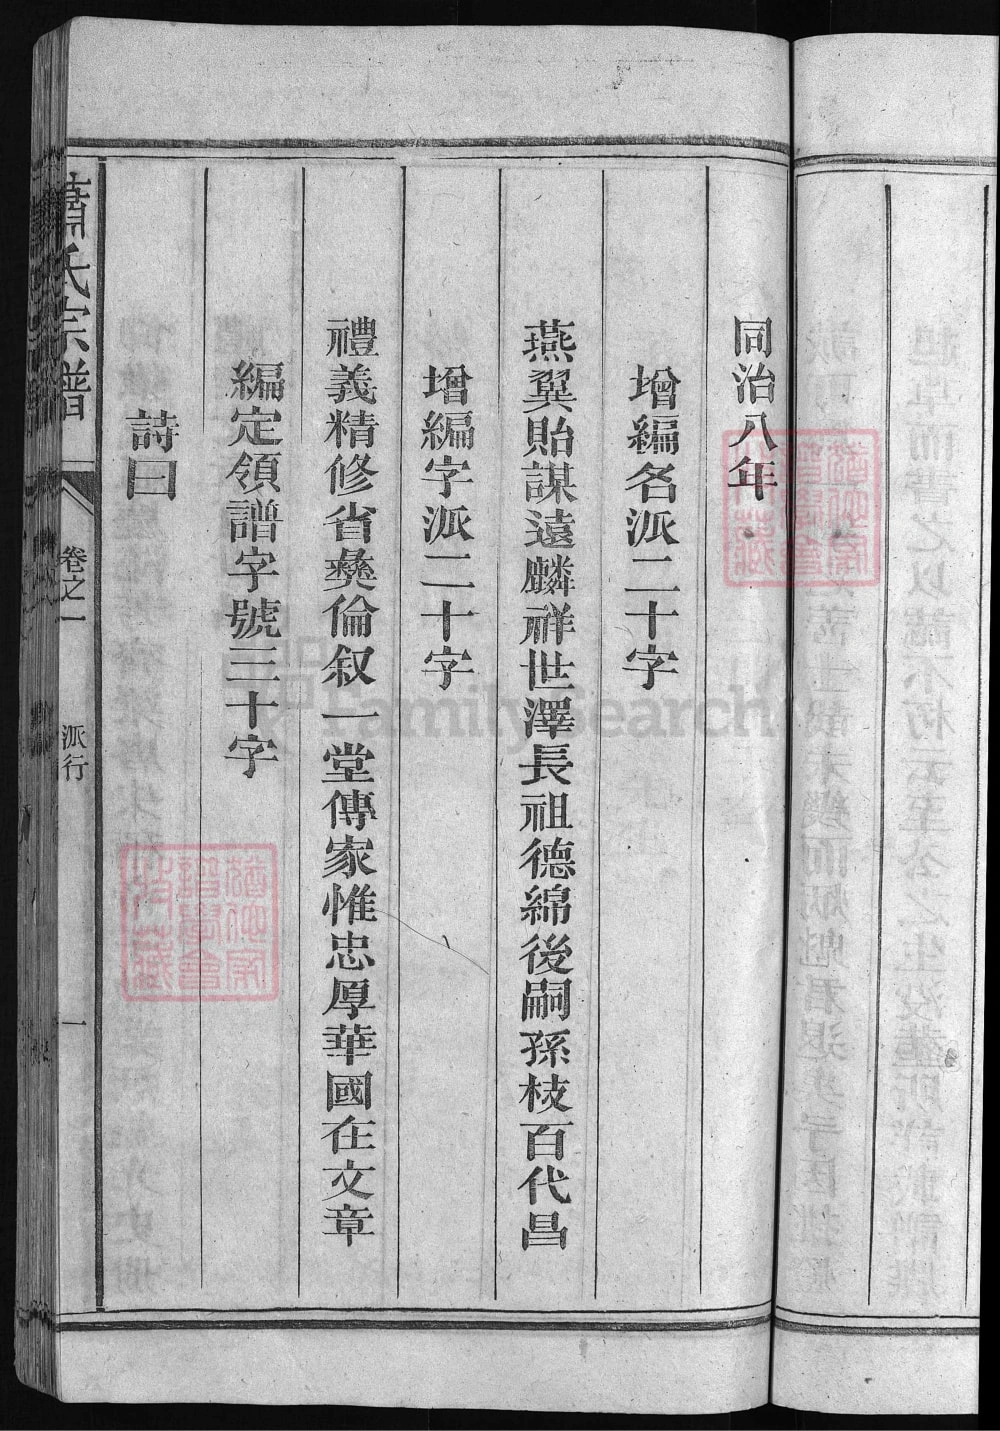 同治八年
增編名派二十字
燕翼貽謀遠麟祥世澤長祖德綿後嗣孫枝百代昌
增編字派二十字
禮義精修省彜倫叙一堂傳家惟忠厚華國在文章
編定領譜字號三十字
詩曰
蕭氏宗譜
卷之一
派行
一
FamilySearch